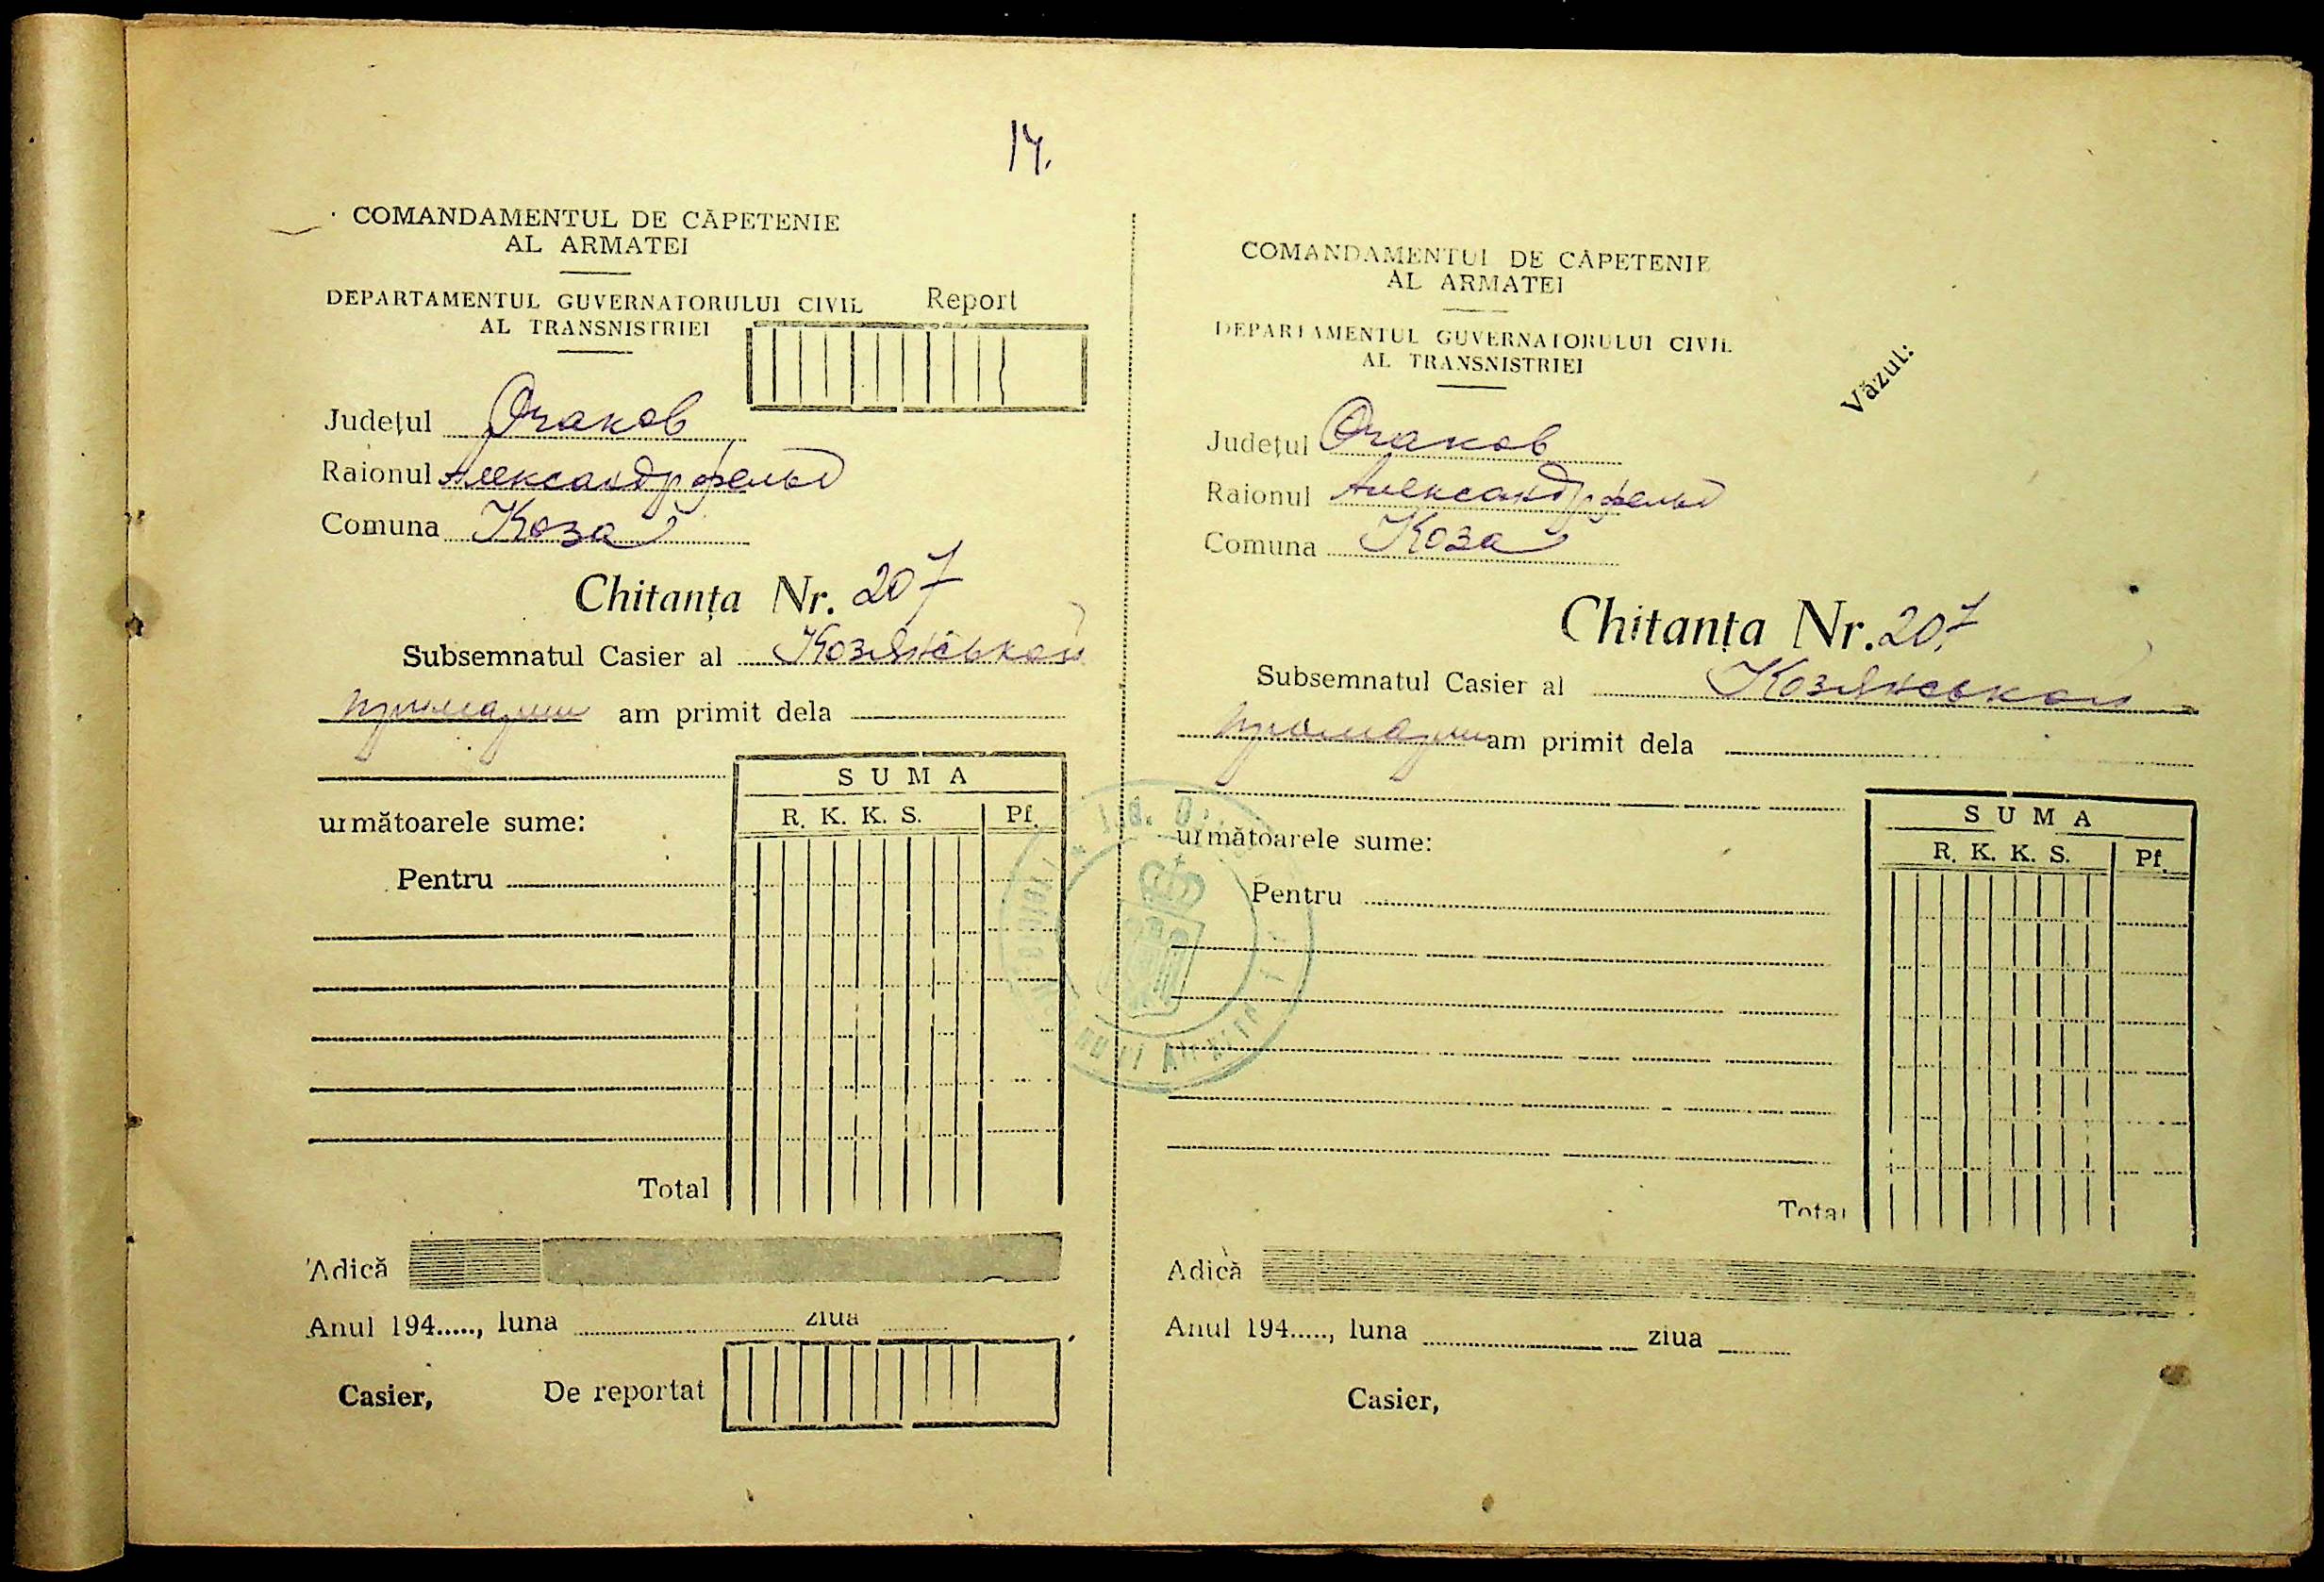 14.
COMANDAMENTUL DE CĂPETENIE
AL ARMATEI
DEPARTAMENTUL GUVERNATORULUI CIVIL
AL TRANSNISTRIEI
Report
Județul Очаков
Raionul Александрфельд
Comuna Коза
Chitanța Nr. 207
Subsemnatul Casier al Козянськой
примарии am primit dela
SUMA
R. K. K. S. Pf.
următoarele sume:
Pentru
Total
Adică
Anul 194....., luna ziua
Casier, De reportat
COMANDAMENTUL DE CĂPETENIE
AL ARMATEI
DEPARTAMENTUL GUVERNATORULUI CIVIL
AL TRANSNISTRIEI
Văzut:
Județul Очаков
Raionul Александрфельд
Comuna Коза
Chitanța Nr. 207
Subsemnatul Casier al Козянськой
примарии am primit dela
SUMA
R. K. K. S. Pf.
următoarele sume:
Pentru
Total
Adică
Anul 194....., luna ziua
Casier,